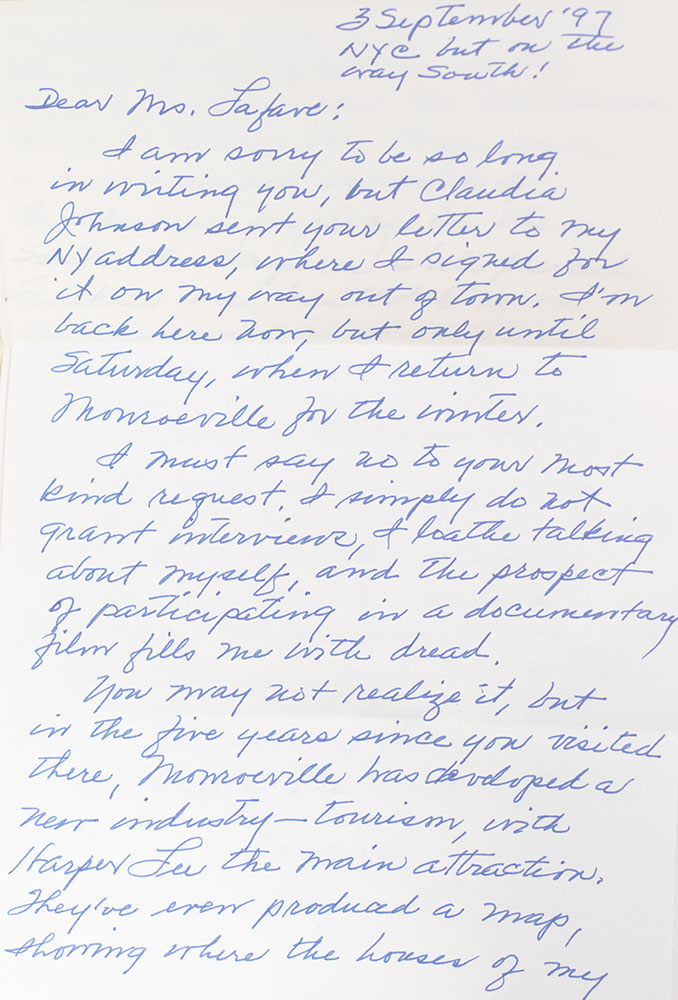 3 September '97
NYC but on the
way South!
Dear Ms. Lafave:
I am sorry to be so long
in writing you, but Claudia
Johnson sent your letter to my
NY address, where I signed for
it on my way out of town. I'm
back here now, but only until
Saturday, when I return to
Monroeville for the winter.
I must say no to your most
kind request. I simply do not
grant interviews, I loathe talking
about myself, and the prospect
of participating in a documentary
film fills me with dread.
You may not realize it, but
in the five years since you visited
there, Monroeville has developed a
new industry—tourism, with
Harper Lee the main attraction.
They've even produced a map,
showing where the houses of my